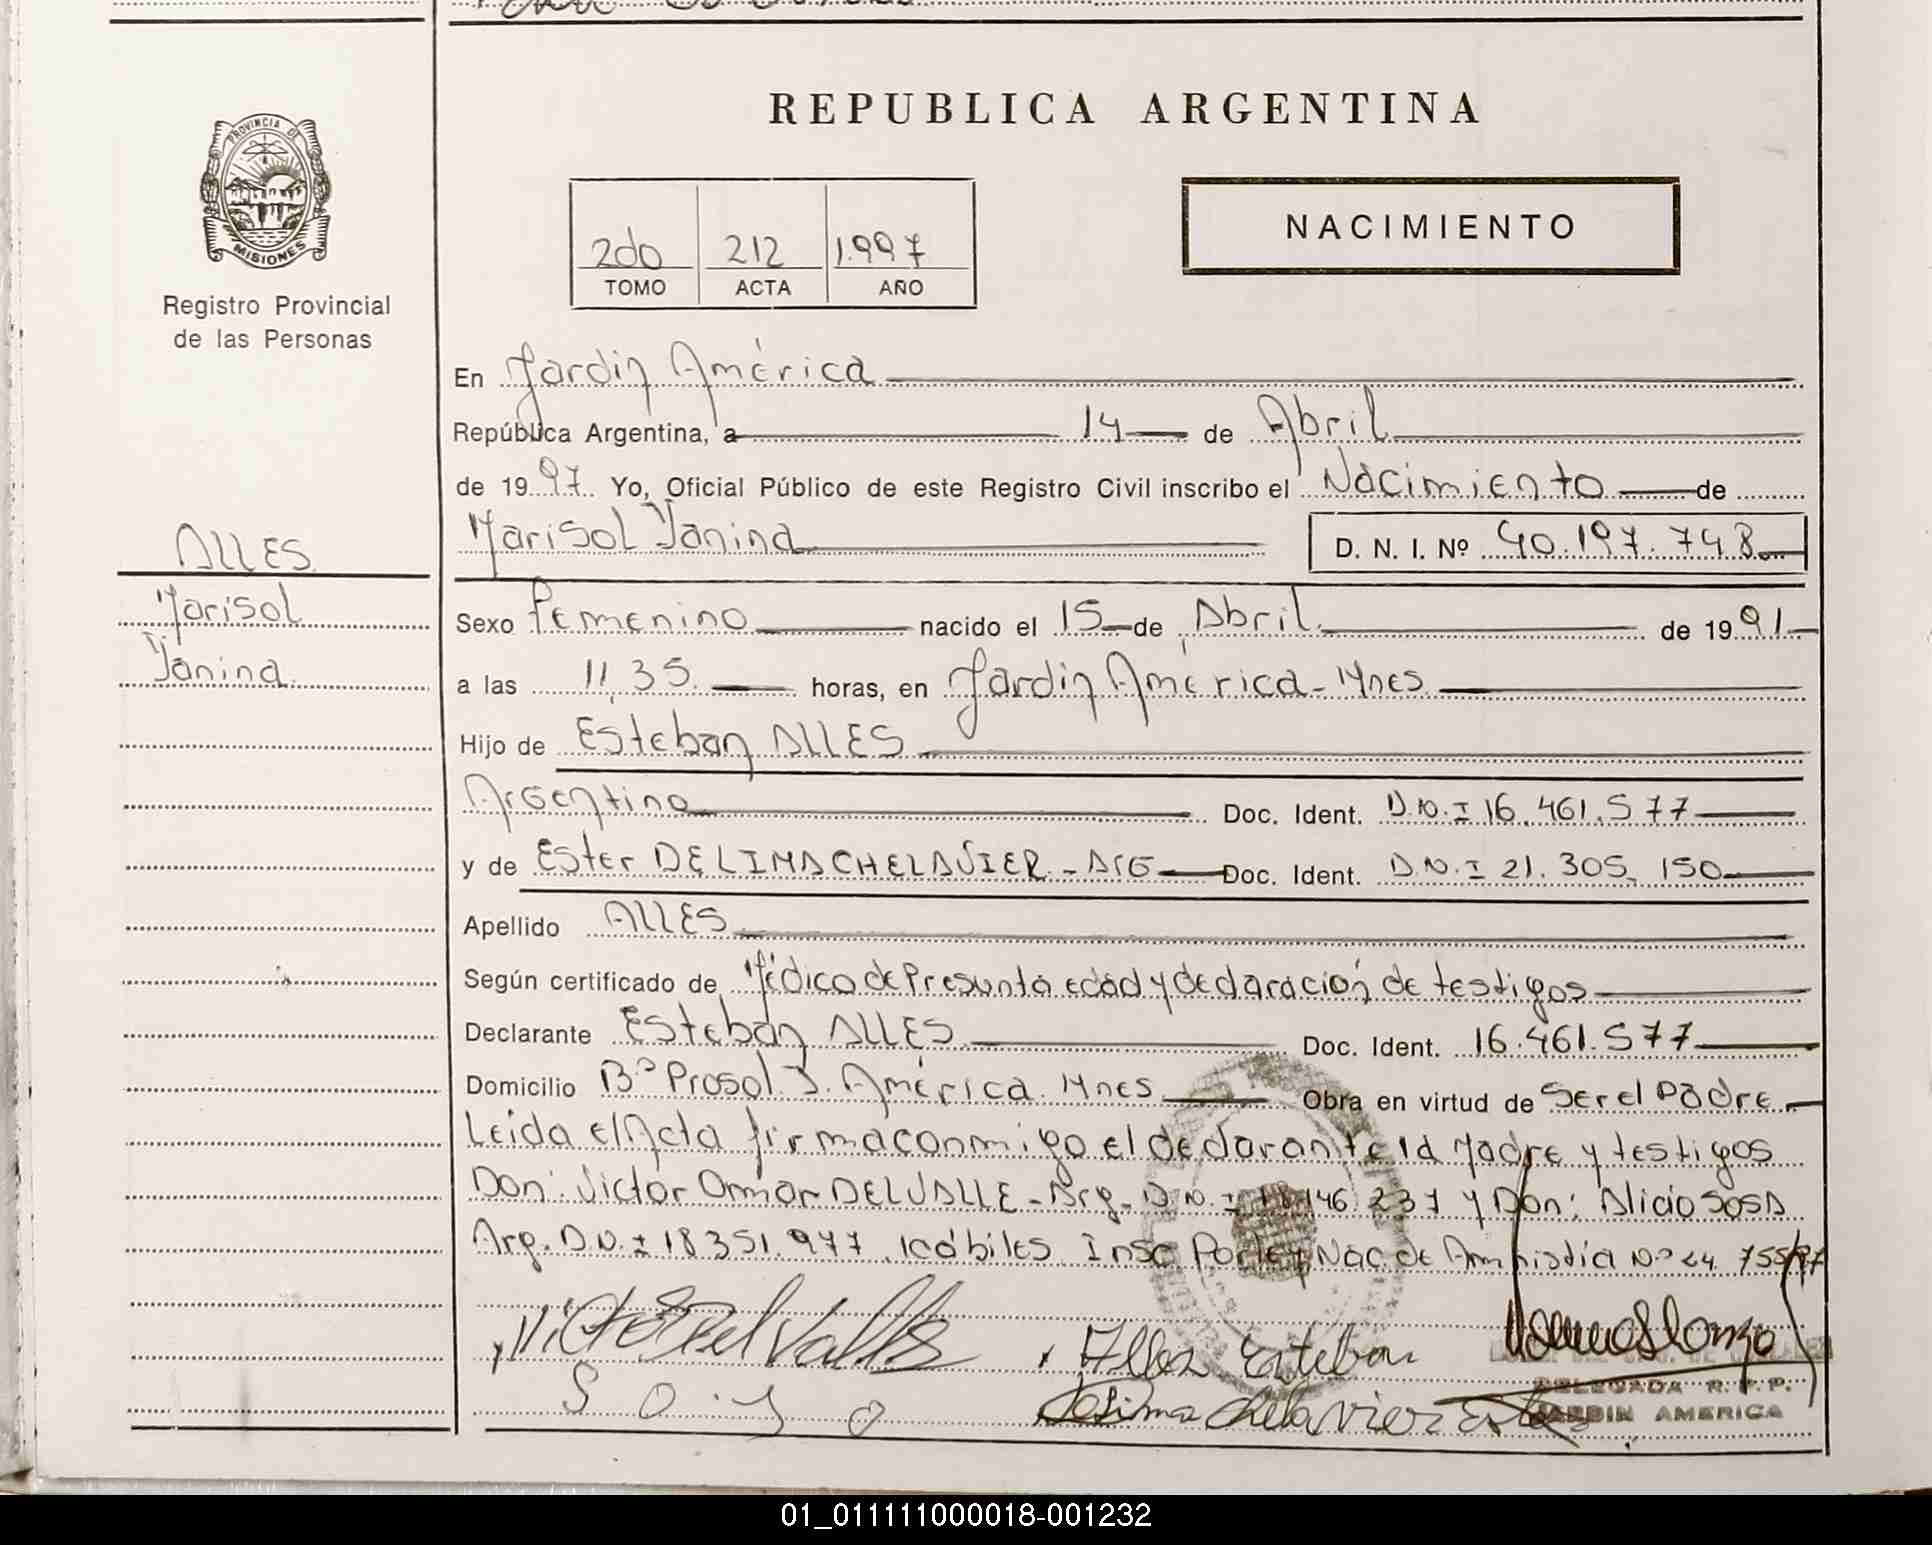 REPUBLICA ARGENTINA
PROVINCIA DE
MISIONES
Registro Provincial
de las Personas
2do 212 1.997
TOMO ACTA AÑO
NACIMIENTO
En Jardin América
República Argentina, a 14 de Abril
de 1997. Yo, Oficial Público de este Registro Civil inscribo el Nacimiento de
Marisol Yanina D. N. I. Nº 40.197.748
ALLES
Marisol
Yanina
Sexo Femenino nacido el 15 de Abril de 1991
a las 11,35 horas, en Jardin América - Mnes
Hijo de Esteban ALLES
Argentino Doc. Ident. D.N.I 16.461.577
y de Ester DELIMACHELAVIER - Arg Doc. Ident. D.N.I 21.305.150
Apellido ALLES
Según certificado de Médico de Presunta edad y declaración de testigos
Declarante Esteban ALLES Doc. Ident. 16.461.577
Domicilio Bº Prosol J. América Mnes Obra en virtud de Ser el Padre
Leida el Acta firma conmigo el declarante la Madre y testigos
Don: Victor Omar DELVALLE - Arg. D.N.I 146 237 y Don: Alicio SOSA
Arg. D.N.I 18351.977 Insc Por Ley Nac de Amnistía Nº 24.755/97
Victor Del Valle
Alles Esteban
Chelavier
DELEGADA R. P. P.
JARDIN AMERICA
01_011111000018-001232